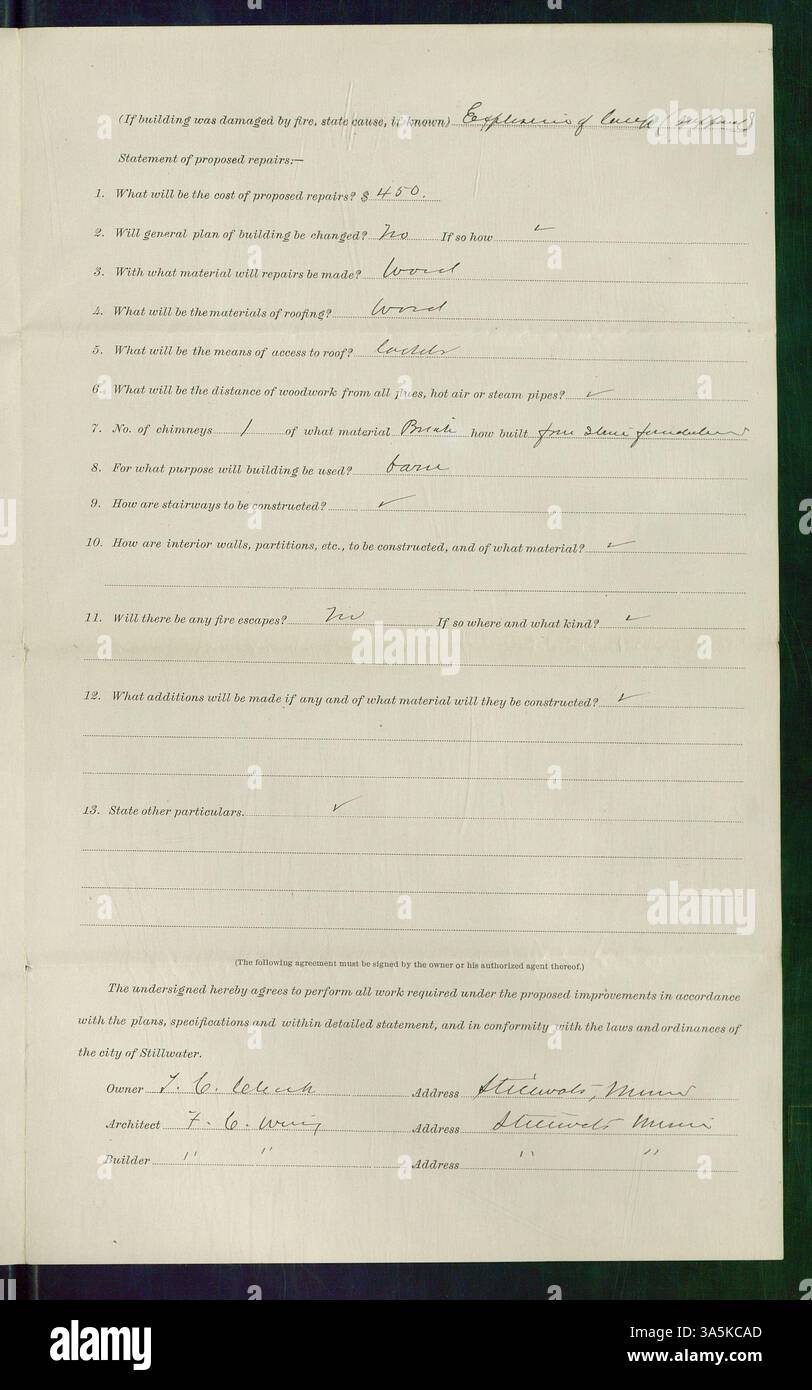 (If building was damaged by fire, state cause, if known) Explosion of lamp (supposed)
Statement of proposed repairs:—
1. What will be the cost of proposed repairs? $ 450.
2. Will general plan of building be changed? No If so how ✓
3. With what material will repairs be made? Wood
4. What will be the materials of roofing? Wood
5. What will be the means of access to roof? ladder
6. What will be the distance of woodwork from all flues, hot air or steam pipes? ✓
7. No. of chimneys 1 of what material Brick how built from stone foundation
8. For what purpose will building be used? barn
9. How are stairways to be constructed? ✓
10. How are interior walls, partitions, etc., to be constructed, and of what material? ✓
11. Will there be any fire escapes? No If so where and what kind? ✓
12. What additions will be made if any and of what material will they be constructed? ✓
13. State other particulars. ✓
(The following agreement must be signed by the owner or his authorized agent thereof.)
The undersigned hereby agrees to perform all work required under the proposed improvements in accordance
with the plans, specifications and within detailed statement, and in conformity with the laws and ordinances of
the city of Stillwater.
Owner J. C. Address Stillwater, Minn
Architect F. C. Address Stillwater Minn
Builder " " Address " "
alamy
alamy
alamy
alamy
alamy
Image ID: 3A5KCAD
www.alamy.com